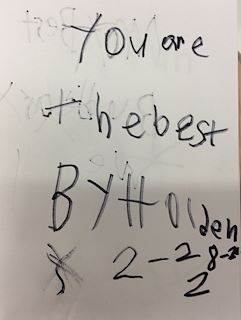 You are
the best
BY Holden
2-28-22